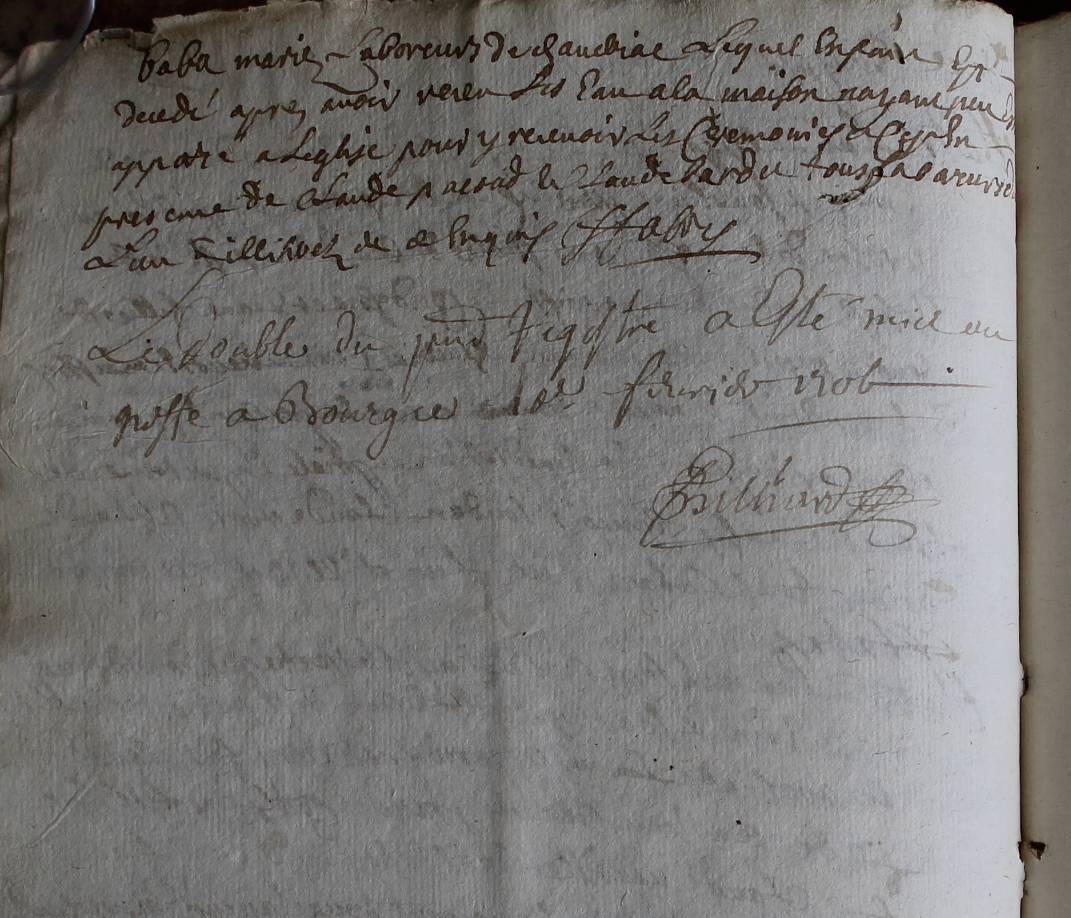 baba mariez Laboreurs de chaudiac Lequel Enfan Est
decedé aprez avoir receu Les Eau a la maison nayant peu
apporté a Leglise pour y recevoir Les Ceremonies & Ce En
presence de Claude pacoud & Claude tous Laboreurs
Lun Illiterez de ce Enquis
Le double du pnt registre a Esté mis au
greffe a Bourg ce 10e. fevrier 1706
Brilliard